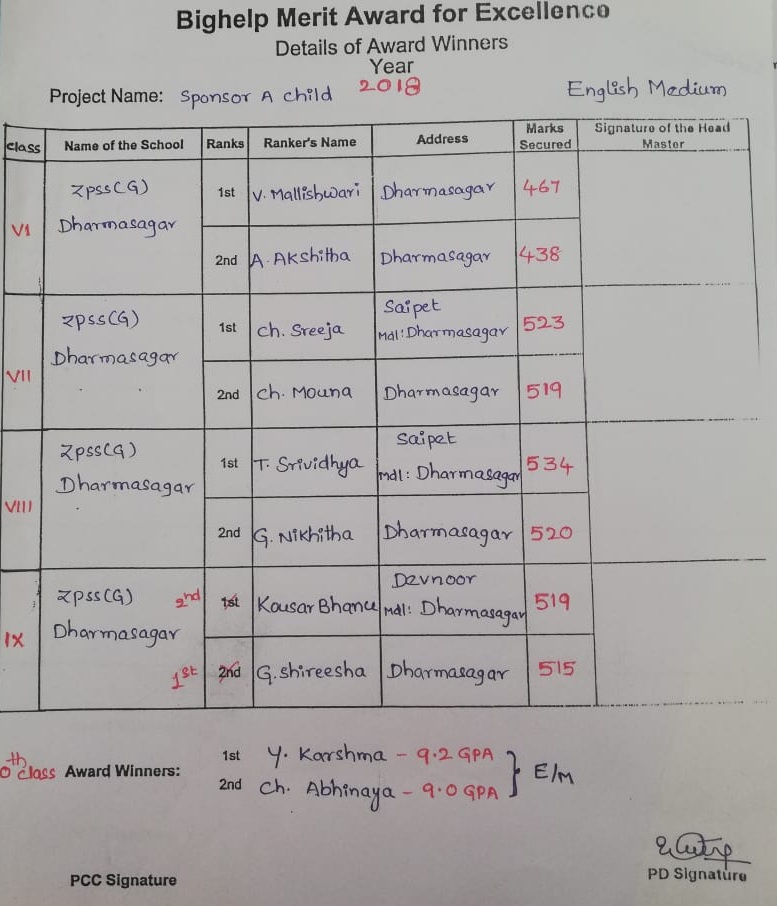 Bighelp Merit Award for Excellence
Details of Award Winners
Year
Project Name: Sponsor A child 2018 English Medium
class Name of the School Ranks Ranker's Name Address Marks Secured Signature of the Head Master
VI ZPSS(G) Dharmasagar 1st V. Mallishwari Dharmasagar 467
2nd A. Akshitha Dharmasagar 438
VII ZPSS(G) Dharmasagar 1st Ch. Sreeja Saipet Mdl: Dharmasagar 523
2nd Ch. Mouna Dharmasagar 519
VIII ZPSS(G) Dharmasagar 1st T. Srividhya Saipet Mdl: Dharmasagar 534
2nd G. Nikhitha Dharmasagar 520
IX ZPSS(G) Dharmasagar 2nd 1st Kousar Bhanu Devnoor Mdl: Dharmasagar 519
1st 2nd G. Shireesha Dharmasagar 515
0th class Award Winners: 1st Y. Karshma - 9.2 GPA
2nd Ch. Abhinaya - 9.0 GPA } E/M
PCC Signature PD Signature